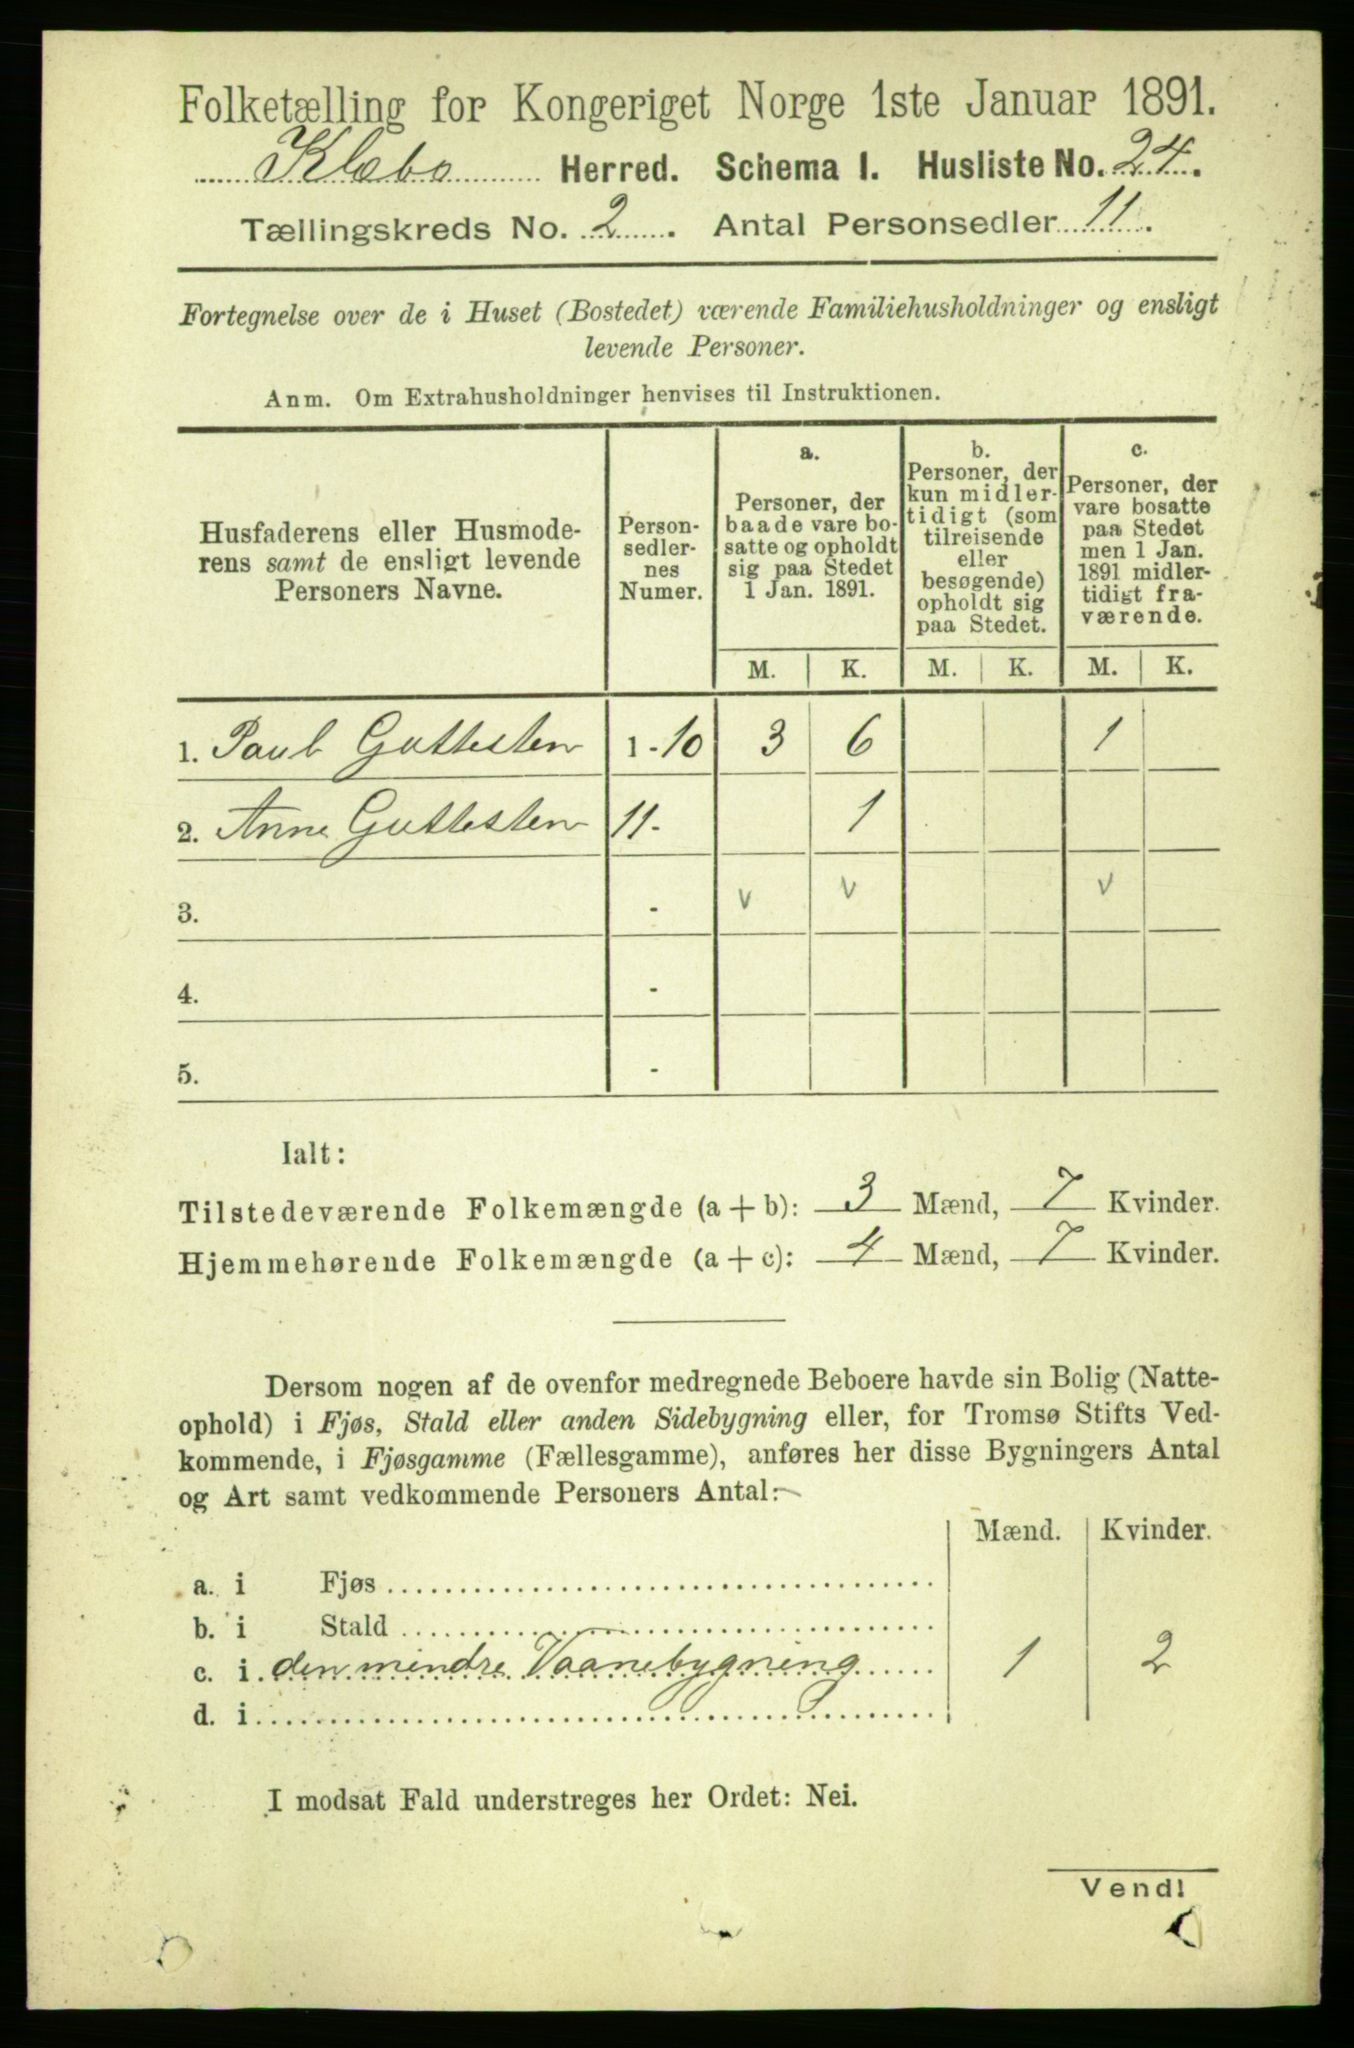 Folketælling for Kongeriget Norge 1ste Januar 1891.
Klæbo Herred. Schema I. Husliste No. 24.
Tællingskreds No. 2. Antal Personsedler 11.
Fortegnelse over de i Huset (Bostedet) værende Familiehusholdninger og ensligt
levende Personer.
Anm. Om Extrahusholdninger henvises til Instruktionen.
Husfaderens eller Husmode-
rens samt de ensligt levende
Personers Navne.
Person-
sedler-
nes
Numer.
a.
Personer, der
baade vare bo-
satte og opholdt
sig paa Stedet
1 Jan. 1891.
b.
Personer, der
kun midler-
tidigt (som
tilreisende
eller
besøgende)
opholdt sig
paa Stedet.
c.
Personer, der
vare bosatte
paa Stedet
men 1 Jan.
1891 midler-
tidigt fra-
værende.
M. K. M. K. M. K.
1. Paul Guttesten 1-10 3 6 1
2. Anne Guttesten 11- 1
3. - v v v
4. -
5. -
Ialt:
Tilstedeværende Folkemængde (a + b): 3 Mænd, 7 Kvinder.
Hjemmehørende Folkemængde (a + c): 4 Mænd, 7 Kvinder.
Dersom nogen af de ovenfor medregnede Beboere havde sin Bolig (Natte-
ophold) i Fjøs, Stald eller anden Sidebygning eller, for Tromsø Stifts Ved-
kommende, i Fjøsgamme (Fællesgamme), anføres her disse Bygningers Antal
og Art samt vedkommende Personers Antal:
Mænd. Kvinder.
a. i Fjøs
b. i Stald
c. i den mindre Vaanebygning 1 2
d. i
I modsat Fald understreges her Ordet: Nei.
Vend!